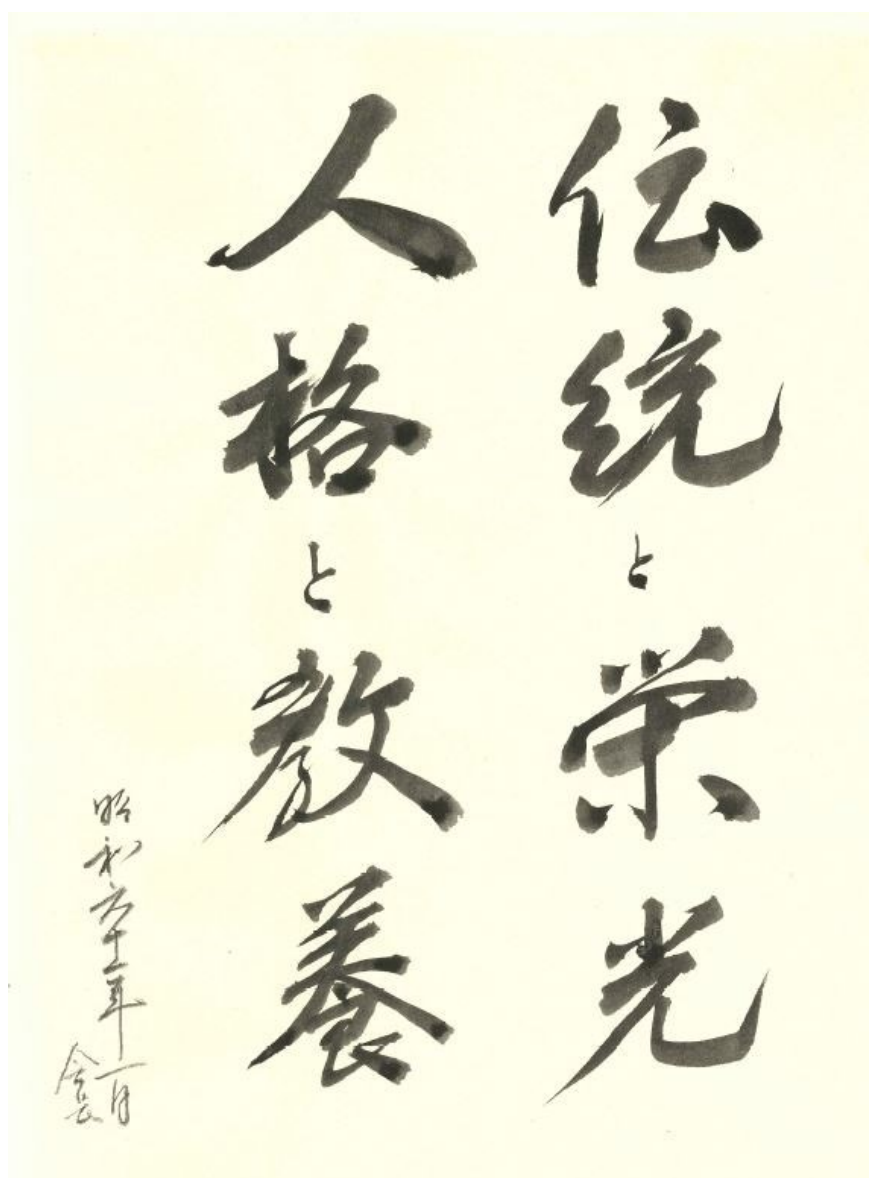 伝統と栄光
人格と教養
昭和六十一年一月
会長